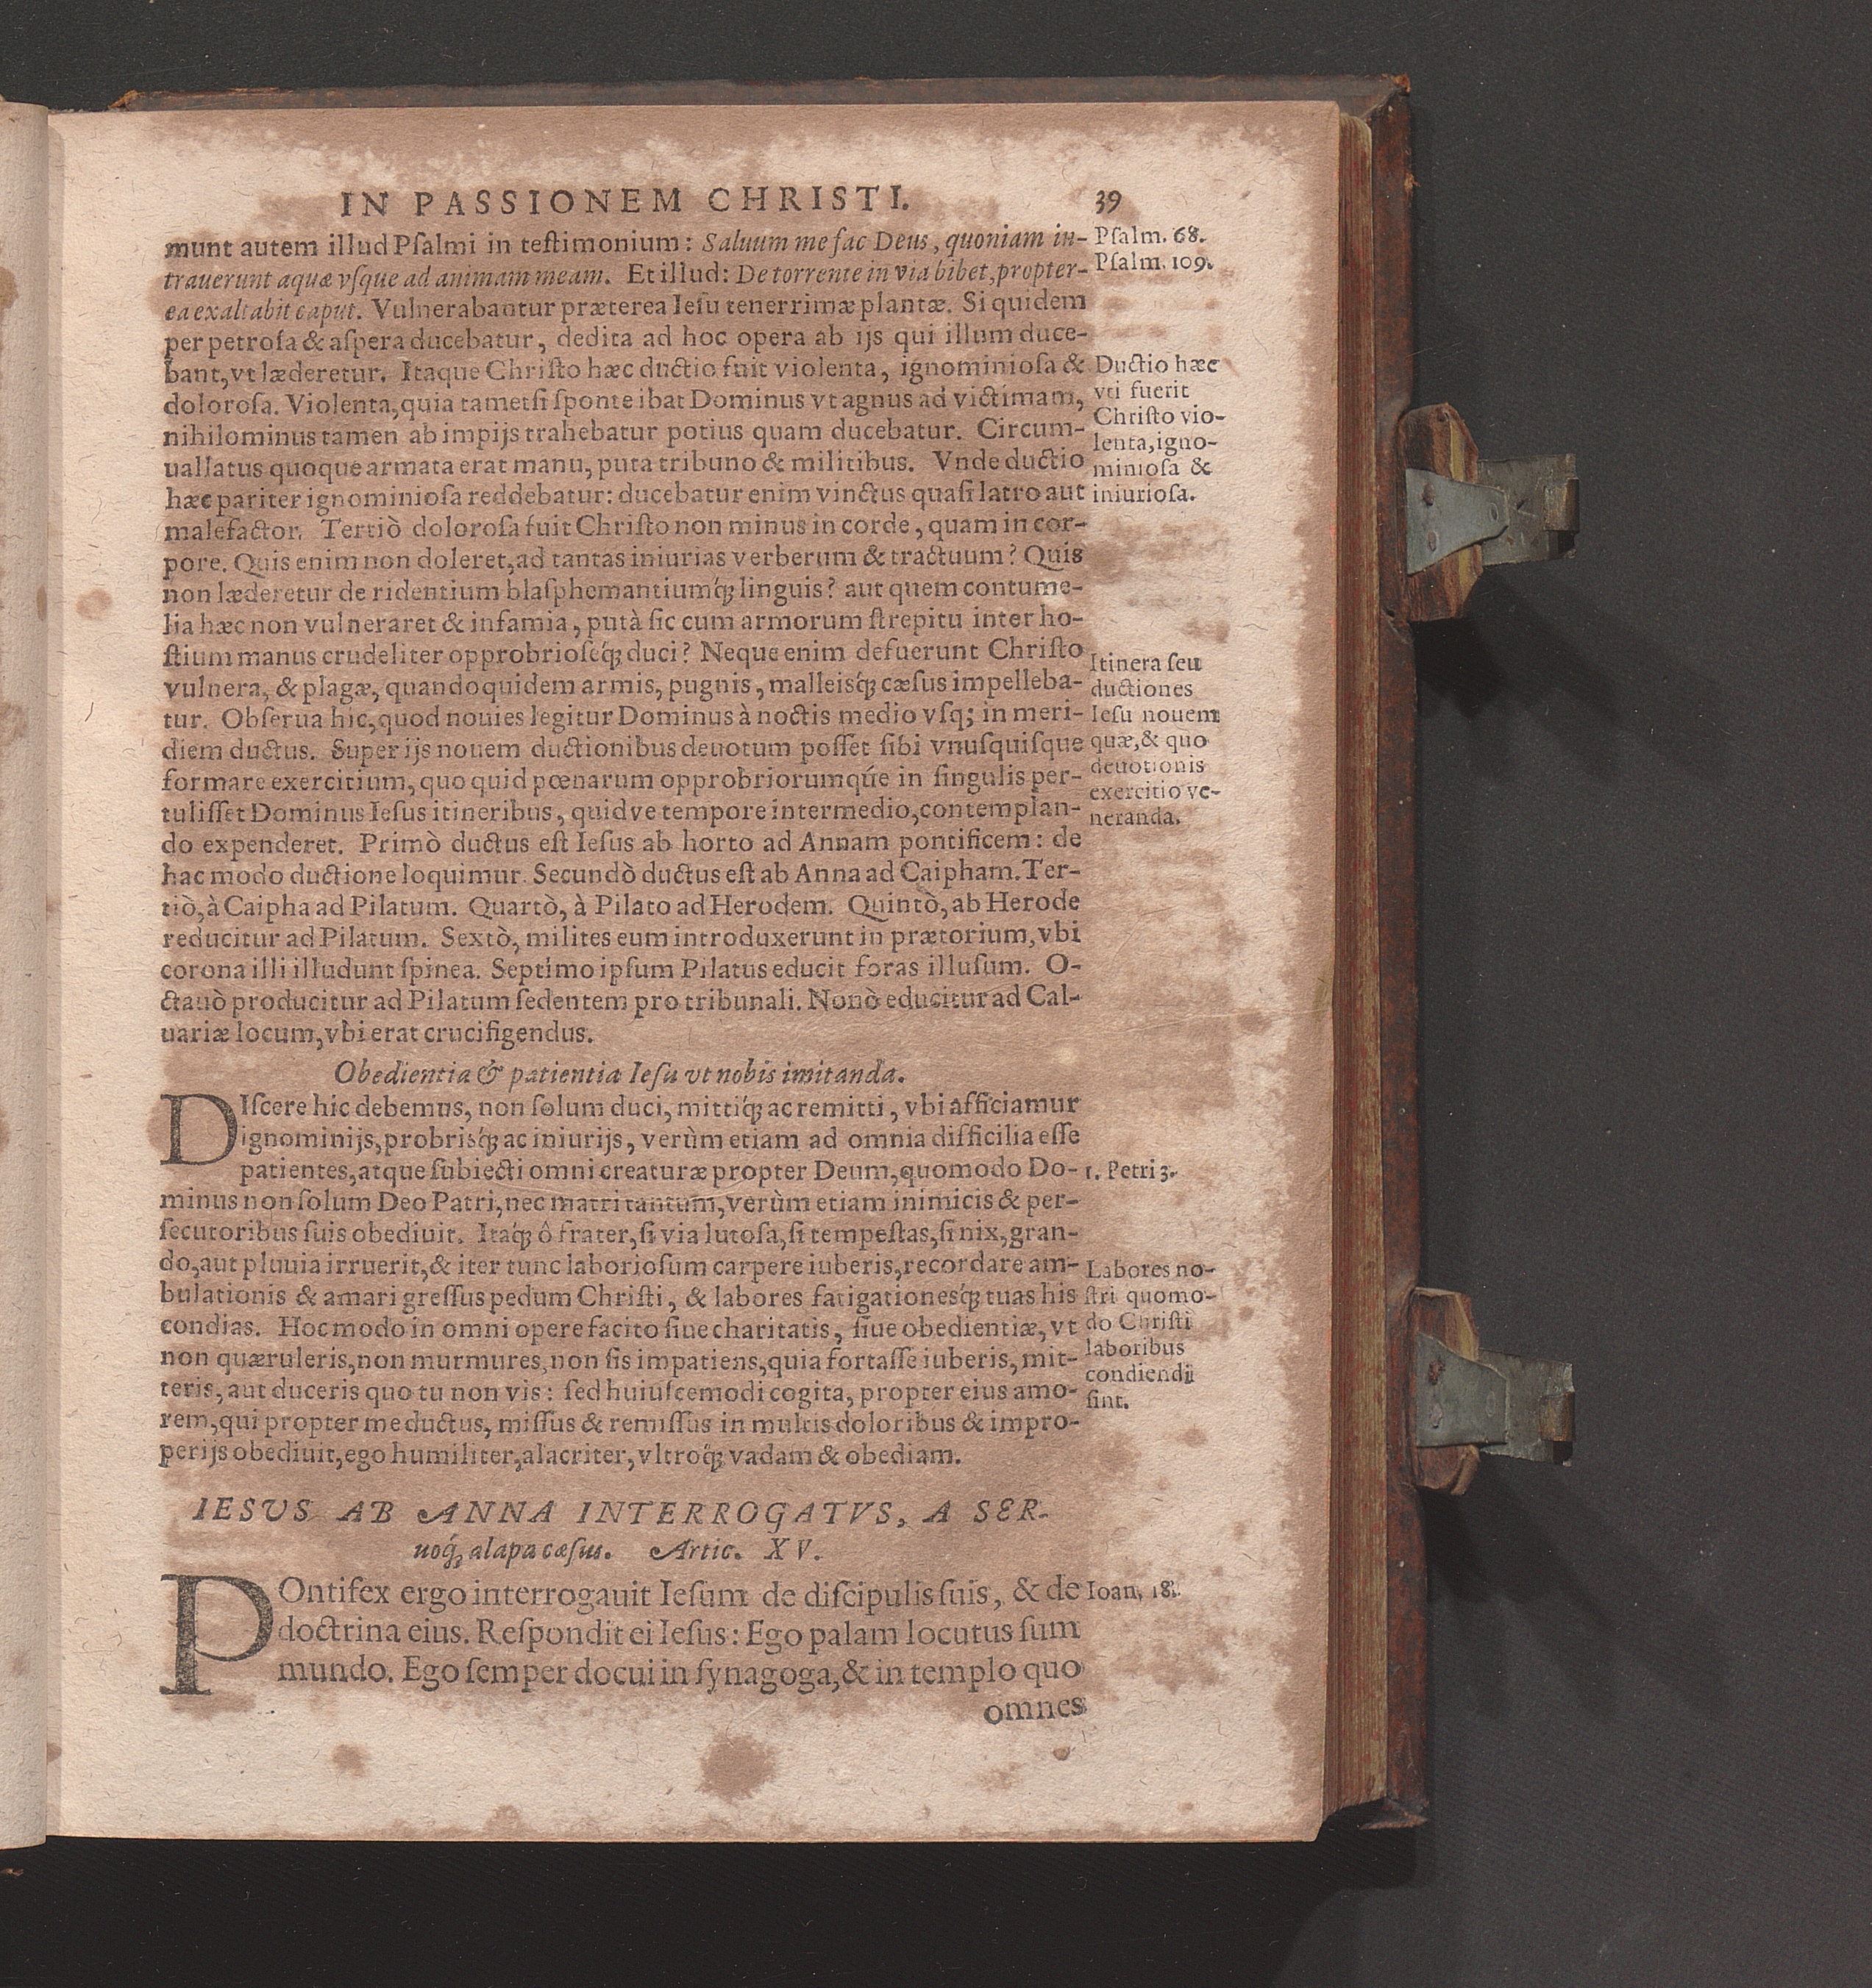 IN PASSIONEM CHRISTI. 39
munt autem illud Pſalmi in teſtimonium: Saluum me fac Deus, quoniam in-
trauerunt aquæ vſque ad animam meam. Et illud: De torrente in via bibet, propter-
ea exaltabit caput. Vulnerabantur præterea Ieſu tenerrimæ plantæ. Si quidem
per petroſa & aſpera ducebatur, dedita ad hoc opera ab ijs qui illum duce-
bant, vt læderetur. Itaque Chriſto hæc ductio fuit violenta, ignominioſa &
doloroſa. Violenta, quia tametſi ſponte ibat Dominus vt agnus ad victimam,
nihilominus tamen ab impijs trahebatur potius quam ducebatur. Circum-
uallatus quoque armata erat manu, puta tribuno & militibus. Vnde ductio
hæc pariter ignominioſa reddebatur: ducebatur enim vinctus quaſi latro aut
malefactor. Tertiò doloroſa fuit Chriſto non minus in corde, quam in cor-
pore. Quis enim non doleret, ad tantas iniurias verberum & tractuum? Quis
non læderetur de ridentium blaſphemantiumq́; linguis? aut quem contume-
lia hæc non vulneraret & infamia, putà ſic cum armorum ſtrepitu inter ho-
ſtium manus crudeliter opprobrioſeq́; duci? Neque enim defuerunt Chriſto
vulnera, & plagæ, quandoquidem armis, pugnis, malleisq́; cæſus impelleba-
tur. Obſerua hic, quod nouies legitur Dominus à noctis medio vſq; in meri-
diem ductus. Super ijs nouem ductionibus deuotum poſſet ſibi vnuſquiſque
formare exercitium, quo quid pœnarum opprobriorumqúe in ſingulis per-
tuliſſet Dominus Ieſus itineribus, quidve tempore intermedio, contemplan-
do expenderet. Primò ductus eſt Ieſus ab horto ad Annam pontificem: de
hac modo ductione loquimur. Secundò ductus eſt ab Anna ad Caipham. Ter-
tiò, à Caipha ad Pilatum. Quartò, à Pilato ad Herodem. Quintò, ab Herode
reducitur ad Pilatum. Sextò, milites eum introduxerunt in prætorium, vbi
corona illi illudunt ſpinea. Septimo ipſum Pilatus educit foras illuſum. O-
ctauò producitur ad Pilatum ſedentem pro tribunali. Nonò educitur ad Cal-
uariæ locum, vbi erat crucifigendus.
Obedientia & patientia Ieſu vt nobis imitanda.
DIſcere hic debemus, non ſolum duci, mittiq́; ac remitti, vbi afficiamur
ignominijs, probrisq́; ac iniurijs, verùm etiam ad omnia difficilia eſſe
patientes, atque ſubiecti omni creaturæ propter Deum, quomodo Do-
minus non ſolum Deo Patri, nec matri tantum, verùm etiam inimicis & per-
ſecutoribus ſuis obediuit. Itaq́; ô frater, ſi via lutoſa, ſi tempeſtas, ſi nix, gran-
do, aut pluuia irruerit, & iter tunc laborioſum carpere iuberis, recordare am-
bulationis & amari greſſus pedum Chriſti, & labores fatigationesq́; tuas his
condias. Hoc modo in omni opere facito ſiue charitatis, ſiue obedientiæ, vt
non quæruleris, non murmures, non ſis impatiens, quia fortaſſe iuberis, mit-
teris, aut duceris quo tu non vis: ſed huiuſcemodi cogita, propter eius amo-
rem, qui propter me ductus, miſſus & remiſſus in multis doloribus & impro-
perijs obediuit, ego humiliter, alacriter, vltroq́; vadam & obediam.
IESVS AB ANNA INTERROGATVS, A SER-
uoq́; alapa cæſus. Artic. XV.
POntifex ergo interrogauit Ieſum de diſcipulis ſuis, & de
doctrina eius. Reſpondit ei Ieſus: Ego palam locutus ſum
mundo. Ego ſemper docui in ſynagoga, & in templo quo
omnes
Pſalm. 68.
Pſalm. 109.
Ductio hæc
vti fuerit
Chriſto vio-
lenta, igno-
minioſa &
iniurioſa.
Itinera ſeu
ductiones
Ieſu nouem
quæ, & quo
deuotionis
exercitio ve-
neranda.
1. Petri 3.
Labores no-
ſtri quomo-
do Chriſti
laboribus
condiendi
ſint.
Ioan. 18.